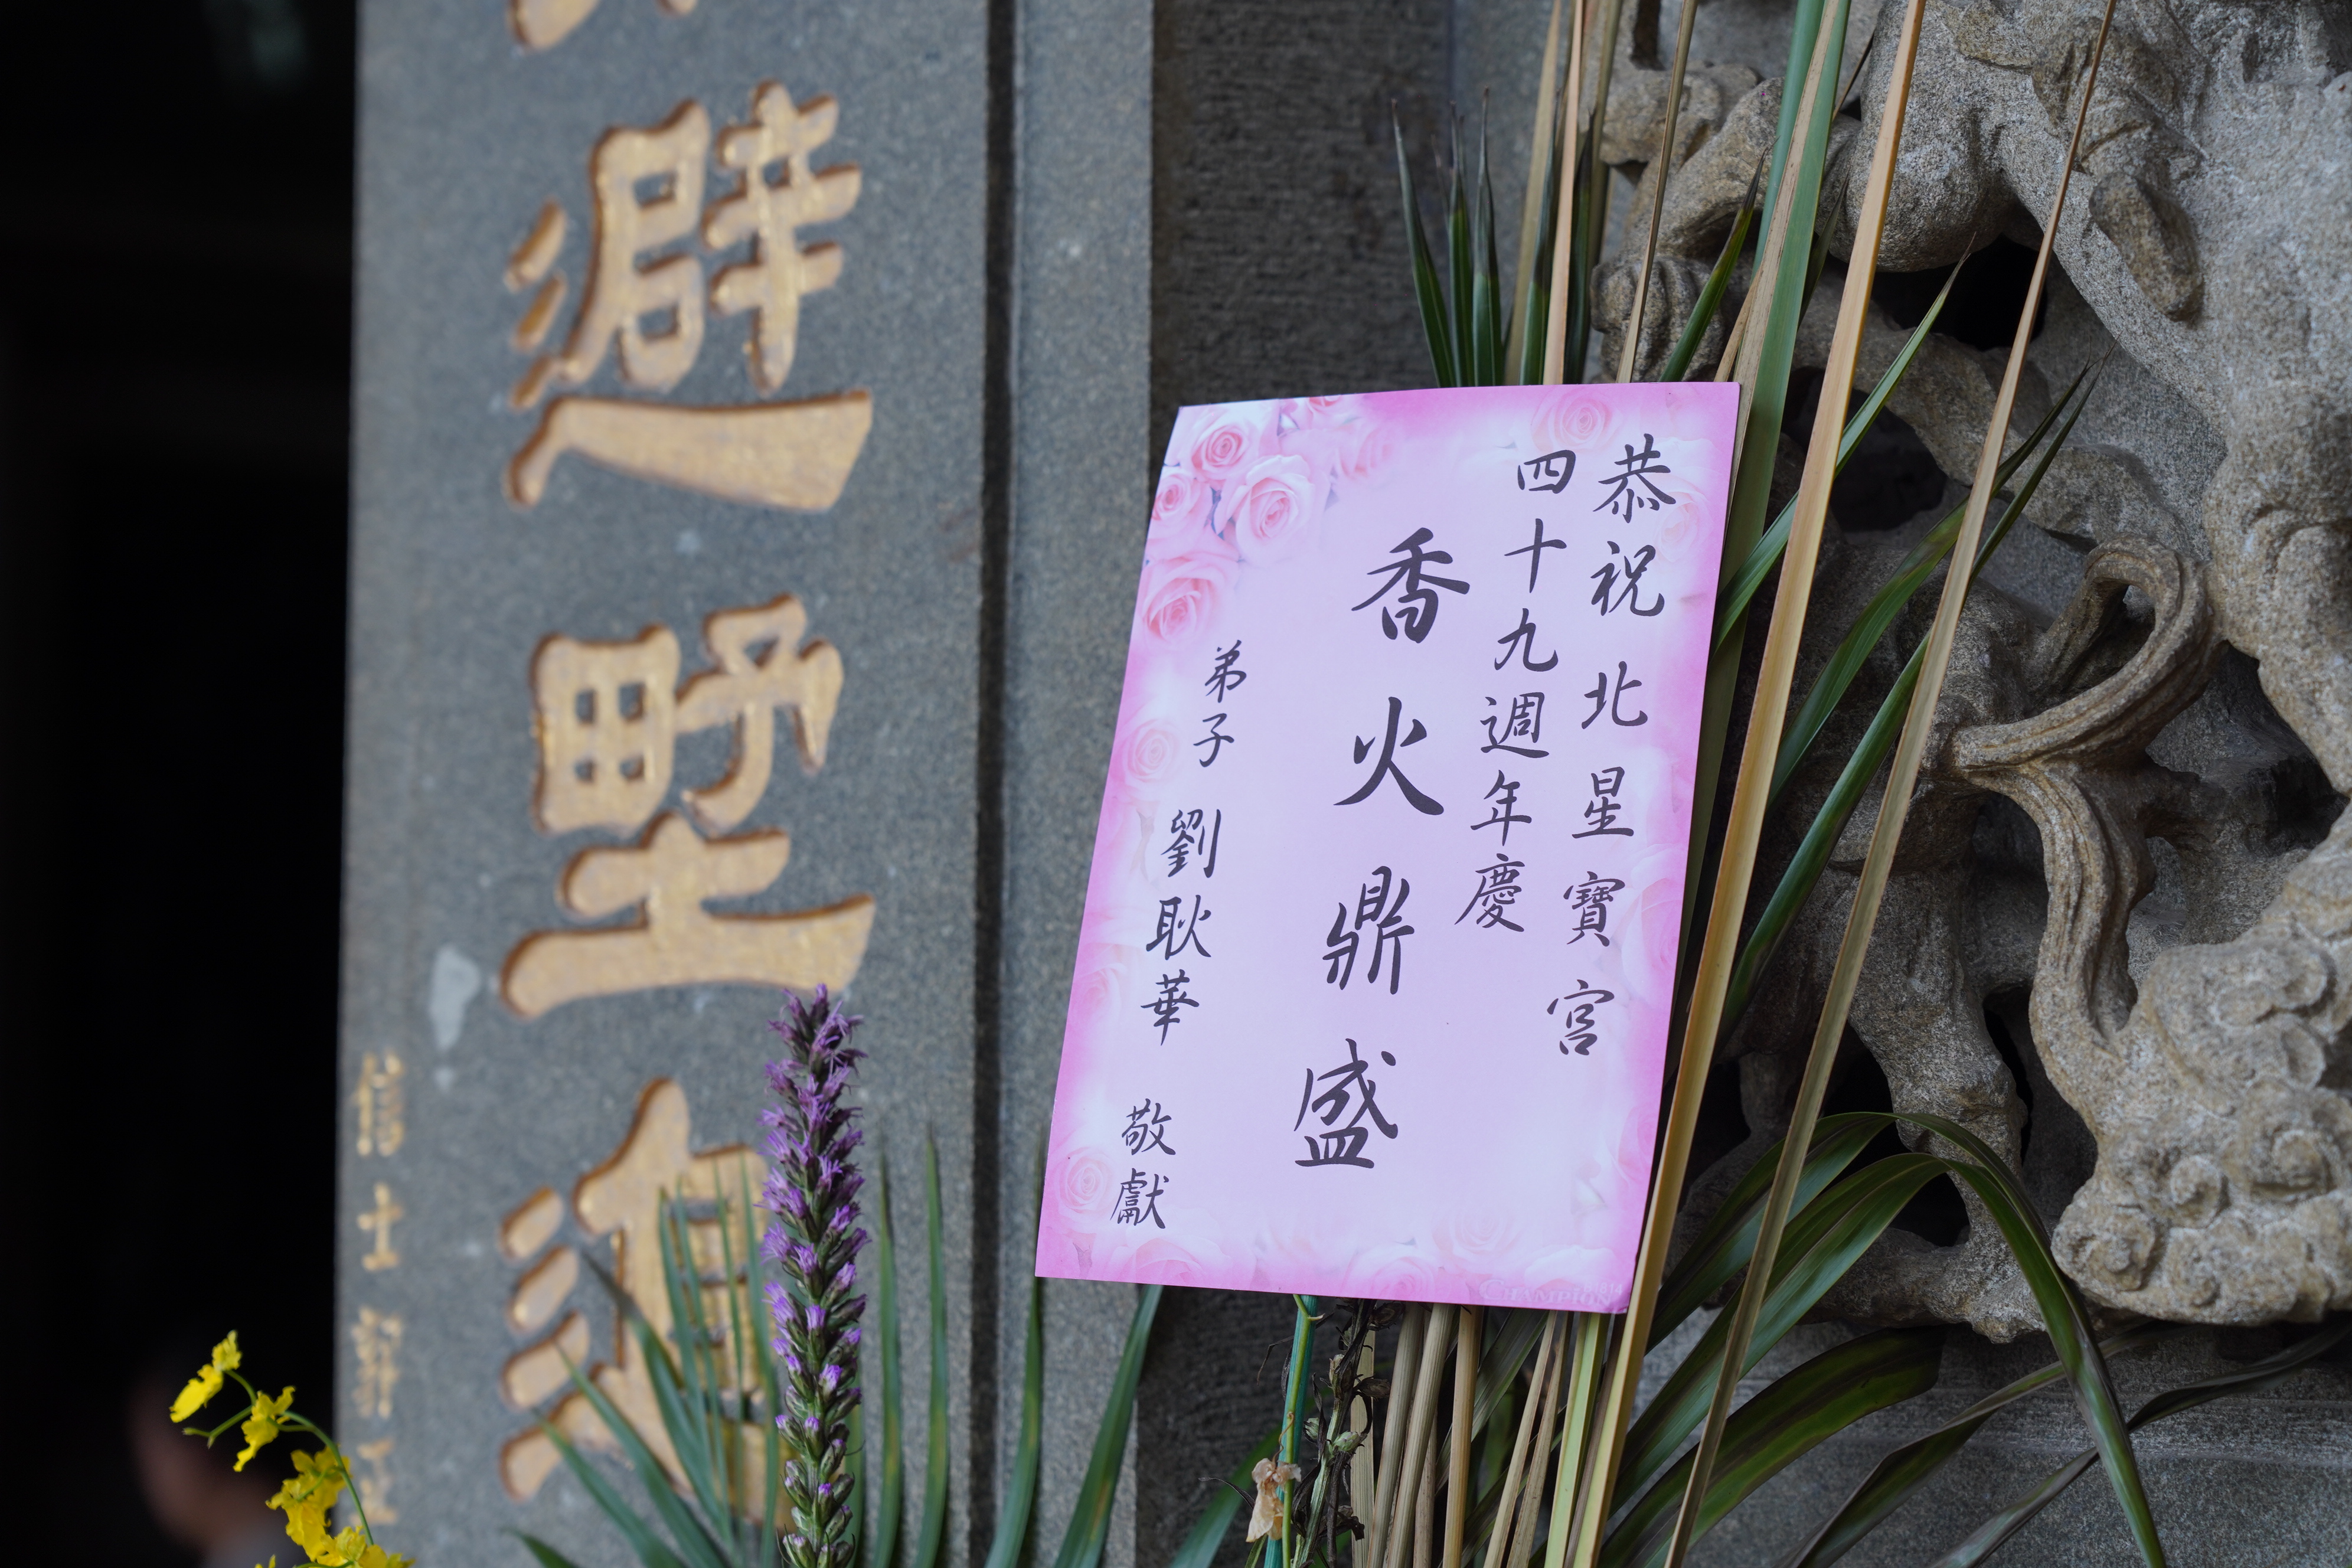 恭祝 北星寶宮
四十九週年慶
香火鼎盛
弟子 劉耿華 敬獻
避野
信士